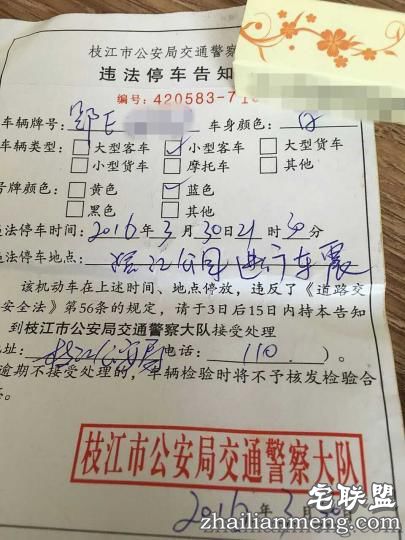 枝江市公安局交通警察
违法停车告知
编号：420583-71
车辆牌号：鄂E 车身颜色：白
车辆类型：□大型客车 ☑小型客车 □大型货车
□小型货车 □摩托车 □其他
号牌颜色：□黄色 ☑蓝色
□黑色 □其他
违法停车时间：2016年3月30日21时30分
违法停车地点：滨江公园进行车震
该机动车在上述时间、地点停放，违反了《道路交
安全法》第56条的规定，请于3日后15日内持本告知
到枝江市公安局交通警察大队接受处理
地址：枝江公安局 电话：110）。
逾期不接受处理的，车辆检验时将不予核发检验合
枝江市公安局交通警察大队
2016年3月30
宅联盟
zhailianmeng.com